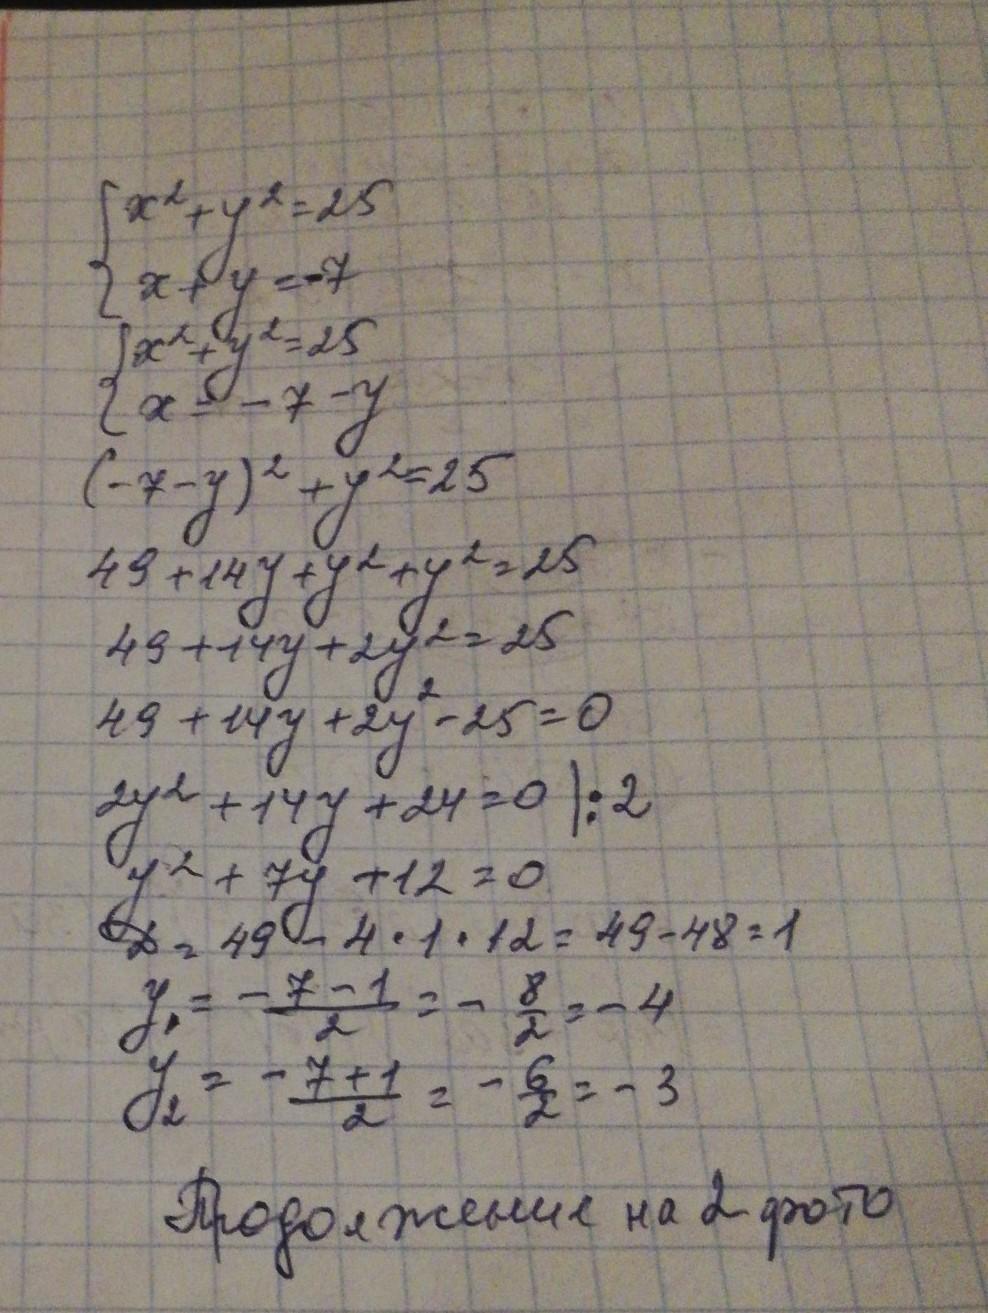 {x²+y²=25
x+y=-7
{x²+y²=25
x=-7-y
(-7-y)²+y²=25
49+14y+y²+y²=25
49+14y+2y²=25
49+14y+2y²-25=0
2y²+14y+24=0 |:2
y²+7y+12=0
D=49-4·1·12=49-48=1
y₁=-7-1/2=-8/2=-4
y₂=-7+1/2=-6/2=-3
Продолжение на 2 фото